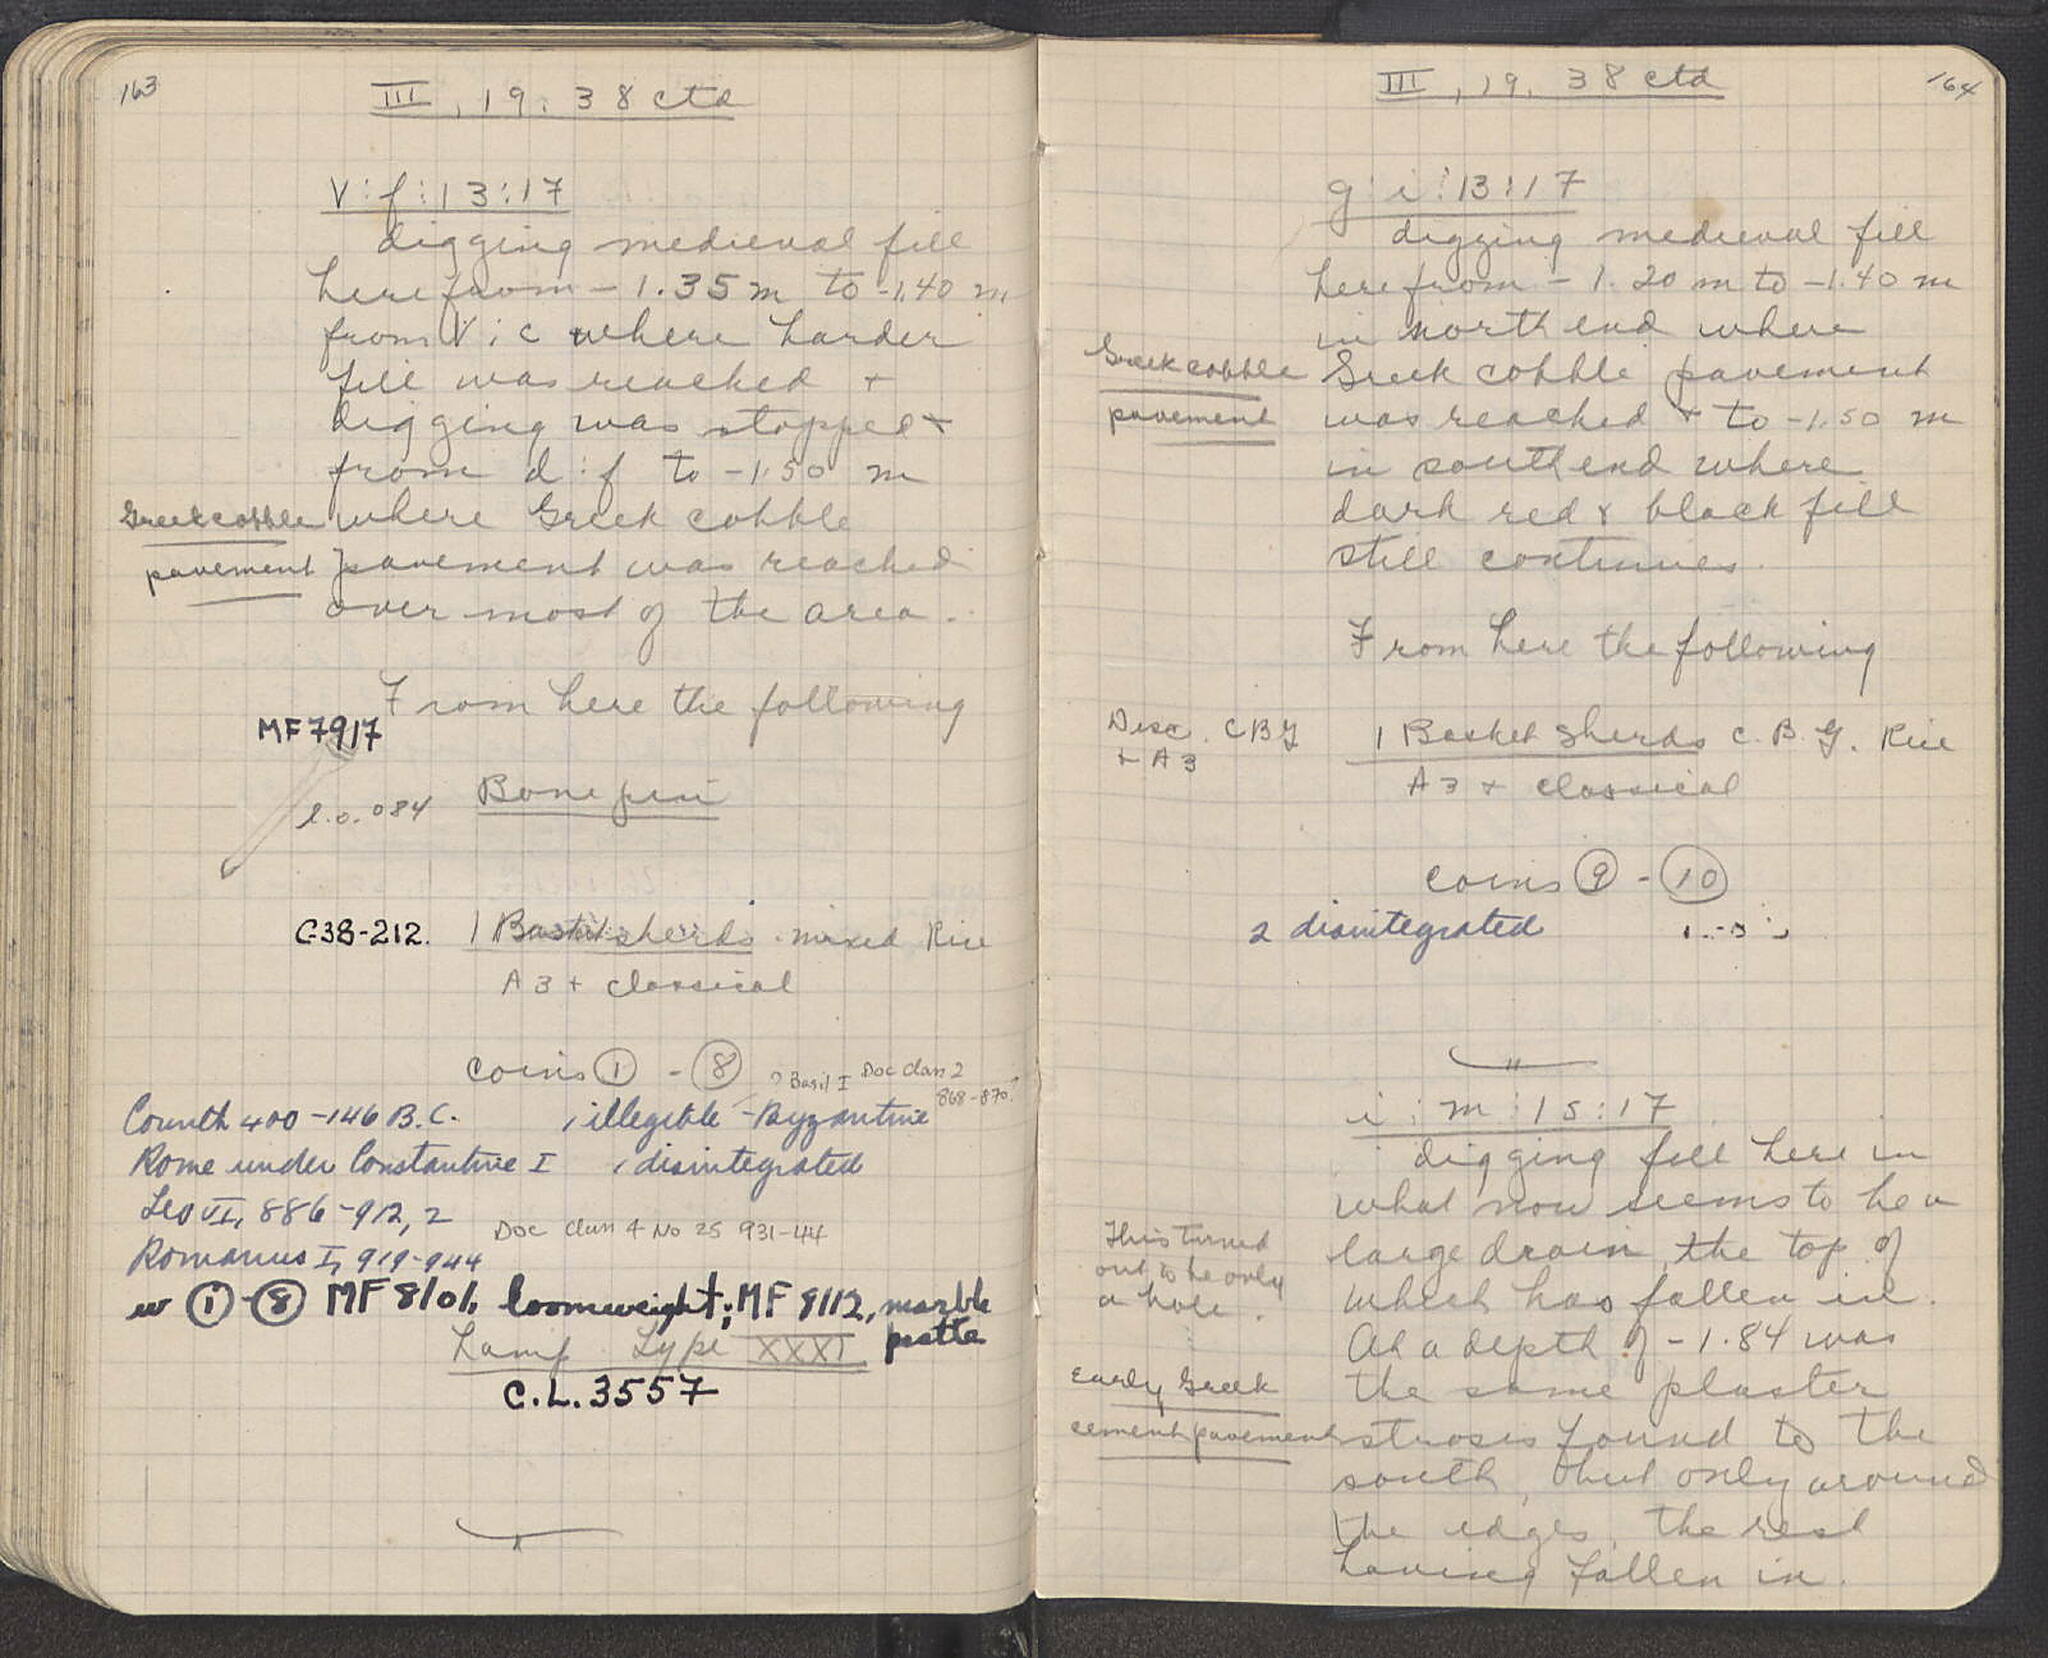 163
III, 19. 38 ctd
V:f:13:17
digging medieval fill
here from -1.35 m to -1.40 m
from V:c where harder
fill was reached +
digging was stopped +
from d:f to -1.50 m
Greek cobble where Greek cobble
pavement pavement was reached
over most of the area.
From here the following
MF 7917
l. 0.084 Bone pin
C-38-212. 1 Basket sherds mixed Rice
A3 + classical
coins ① - ⑧ ? Basil I Doc Class 2
868-870?
Corinth 400-146 B.C. 1 illegible - Byzantine
Rome under Constantine I 1 disintegrated
Leo VI, 886-912, 2
Doc Class 4 No 25 931-44
Romanus I, 919-944
w ① - ⑧ MF 8101, loomweight; MF 9112, marble
Lamp Type XXXI
C.L. 3557
164
III, 19. 38 ctd
g:i:13:17
digging medieval fill
here from -1.20 m to -1.40 m
in north end where
Greek cobble Greek cobble pavement
pavement was reached + to -1.50 m
in south end where
dark red & black fill
still continues.
From here the following
Disc. CBG 1 Basket Sherds C.B.G. Rice
+ A3 A3 + classical
coins ⑨ - ⑩
2 disintegrated
"
i:m:15:17
digging fill here in
what now seems to be a
This turned large drain, the top of
out to be only which has fallen in.
a hole. At a depth of -1.84 was
Early Greek the same plaster
cement pavement strosis found to the
south, but only around
the edges, the rest
having fallen in.